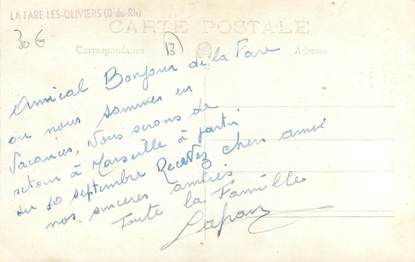 LA FARE-LES-OLIVIERS (B.-du-Rh)
30 €
CARTE POSTALE
Correspondance
13
Adresse
Amical Bonjour de la Fare
ou nous sommes en
Vacances, Nous serons de
retour à Marseille à partir
du 10 septembre Recevez chers amis
nos sinceres amitiés
Toute la Famille